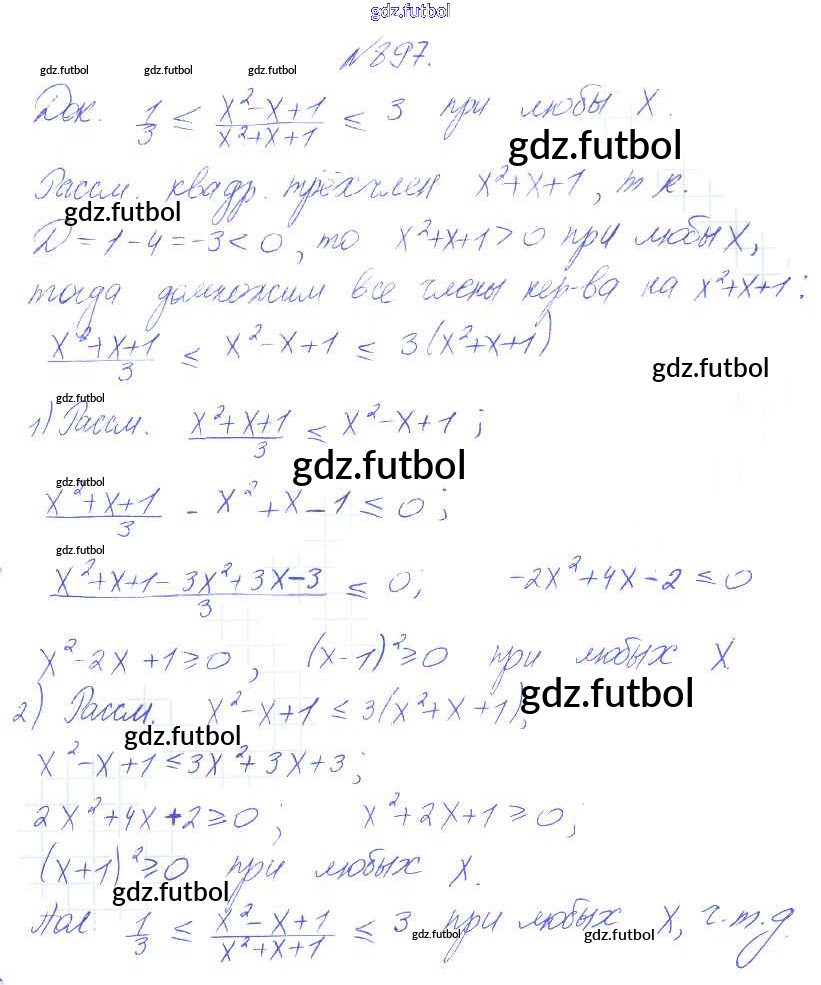 gdz.futbol
№897.
gdz.futbol gdz.futbol gdz.futbol
Док. 1/3 ≤ (x²-x+1)/(x²+x+1) ≤ 3 при любы x.
gdz.futbol
Рассм. квадр. трёхчлен x²+x+1, т к.
gdz.futbol
D = 1-4 = -3 < 0, то x²+x+1>0 при любы x,
тогда домножим все члены нер-ва на x²+x+1:
(x²+x+1)/3 ≤ x²-x+1 ≤ 3(x²+x+1)
gdz.futbol
gdz.futbol
1) Рассм. (x²+x+1)/3 ≤ x²-x+1;
gdz.futbol
gdz.futbol
(x²+x+1)/3 - x²+x-1 ≤ 0;
gdz.futbol
(x²+x+1-3x²+3x-3)/3 ≤ 0; -2x²+4x-2 ≤ 0
x²-2x+1≥0, (x-1)²≥0 при любых x
gdz.futbol
2) Рассм. x²-x+1 ≤ 3(x²+x+1);
gdz.futbol
x²-x+1≤3x²+3x+3;
2x²+4x+2≥0; x²+2x+1≥0;
(x+1)²≥0 при любых x.
gdz.futbol
1/3 ≤ (x²-x+1)/(x²+x+1) ≤ 3 при любых x, ч.т.д.
gdz.futbol gdz.futbol